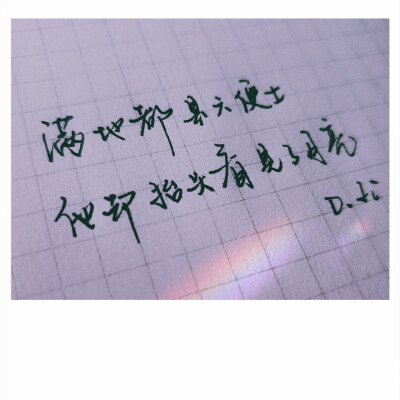 满地都是六便士
他却抬头看见了月亮
D.Li